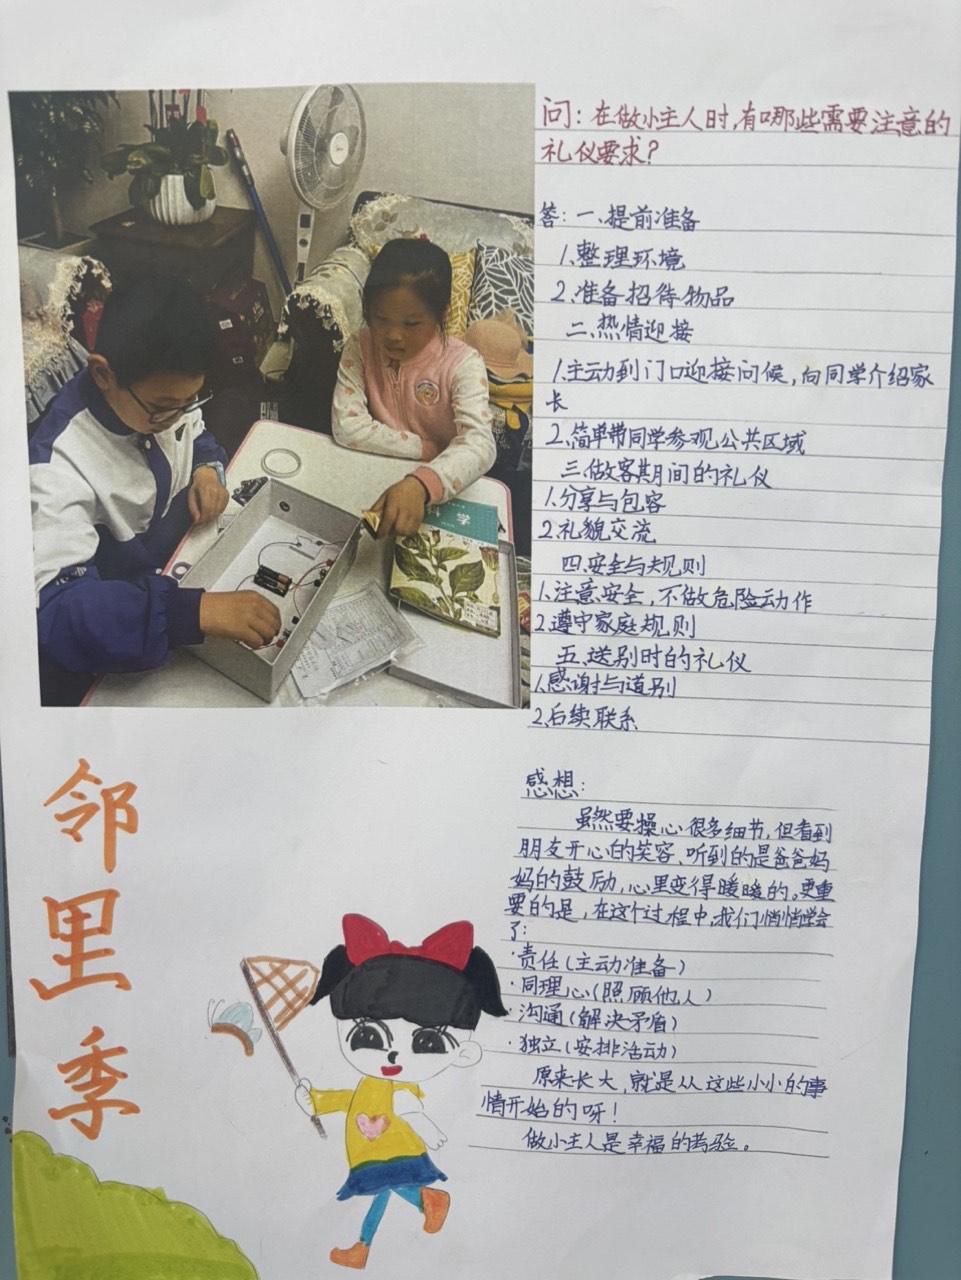 问：在做小主人时，有哪些需要注意的
礼仪要求？
答：一、提前准备
1、整理环境
2、准备招待物品
二、热情迎接
1、主动到门口迎接问候，向同学介绍家
长
2、简单带同学参观公共区域
三、做客期间的礼仪
1、分享与包容
2、礼貌交流
四、安全与规则
1、注意安全，不做危险动作
2、遵守家庭规则
五、送别时的礼仪
1、感谢与道别
2、后续联系
学
邻
里
季
感想：
虽然要操心很多细节，但看到
朋友开心的笑容、听到的是爸爸妈
妈的鼓励，心里变得暖暖的。更重
要的是，在这个过程中，我们悄悄学会
了：
·责任（主动准备）
·同理心（照顾他人）
·沟通（解决矛盾）
·独立（安排活动）
原来长大，就是从这些小小的事
情开始的呀！
做小主人是幸福的考验。